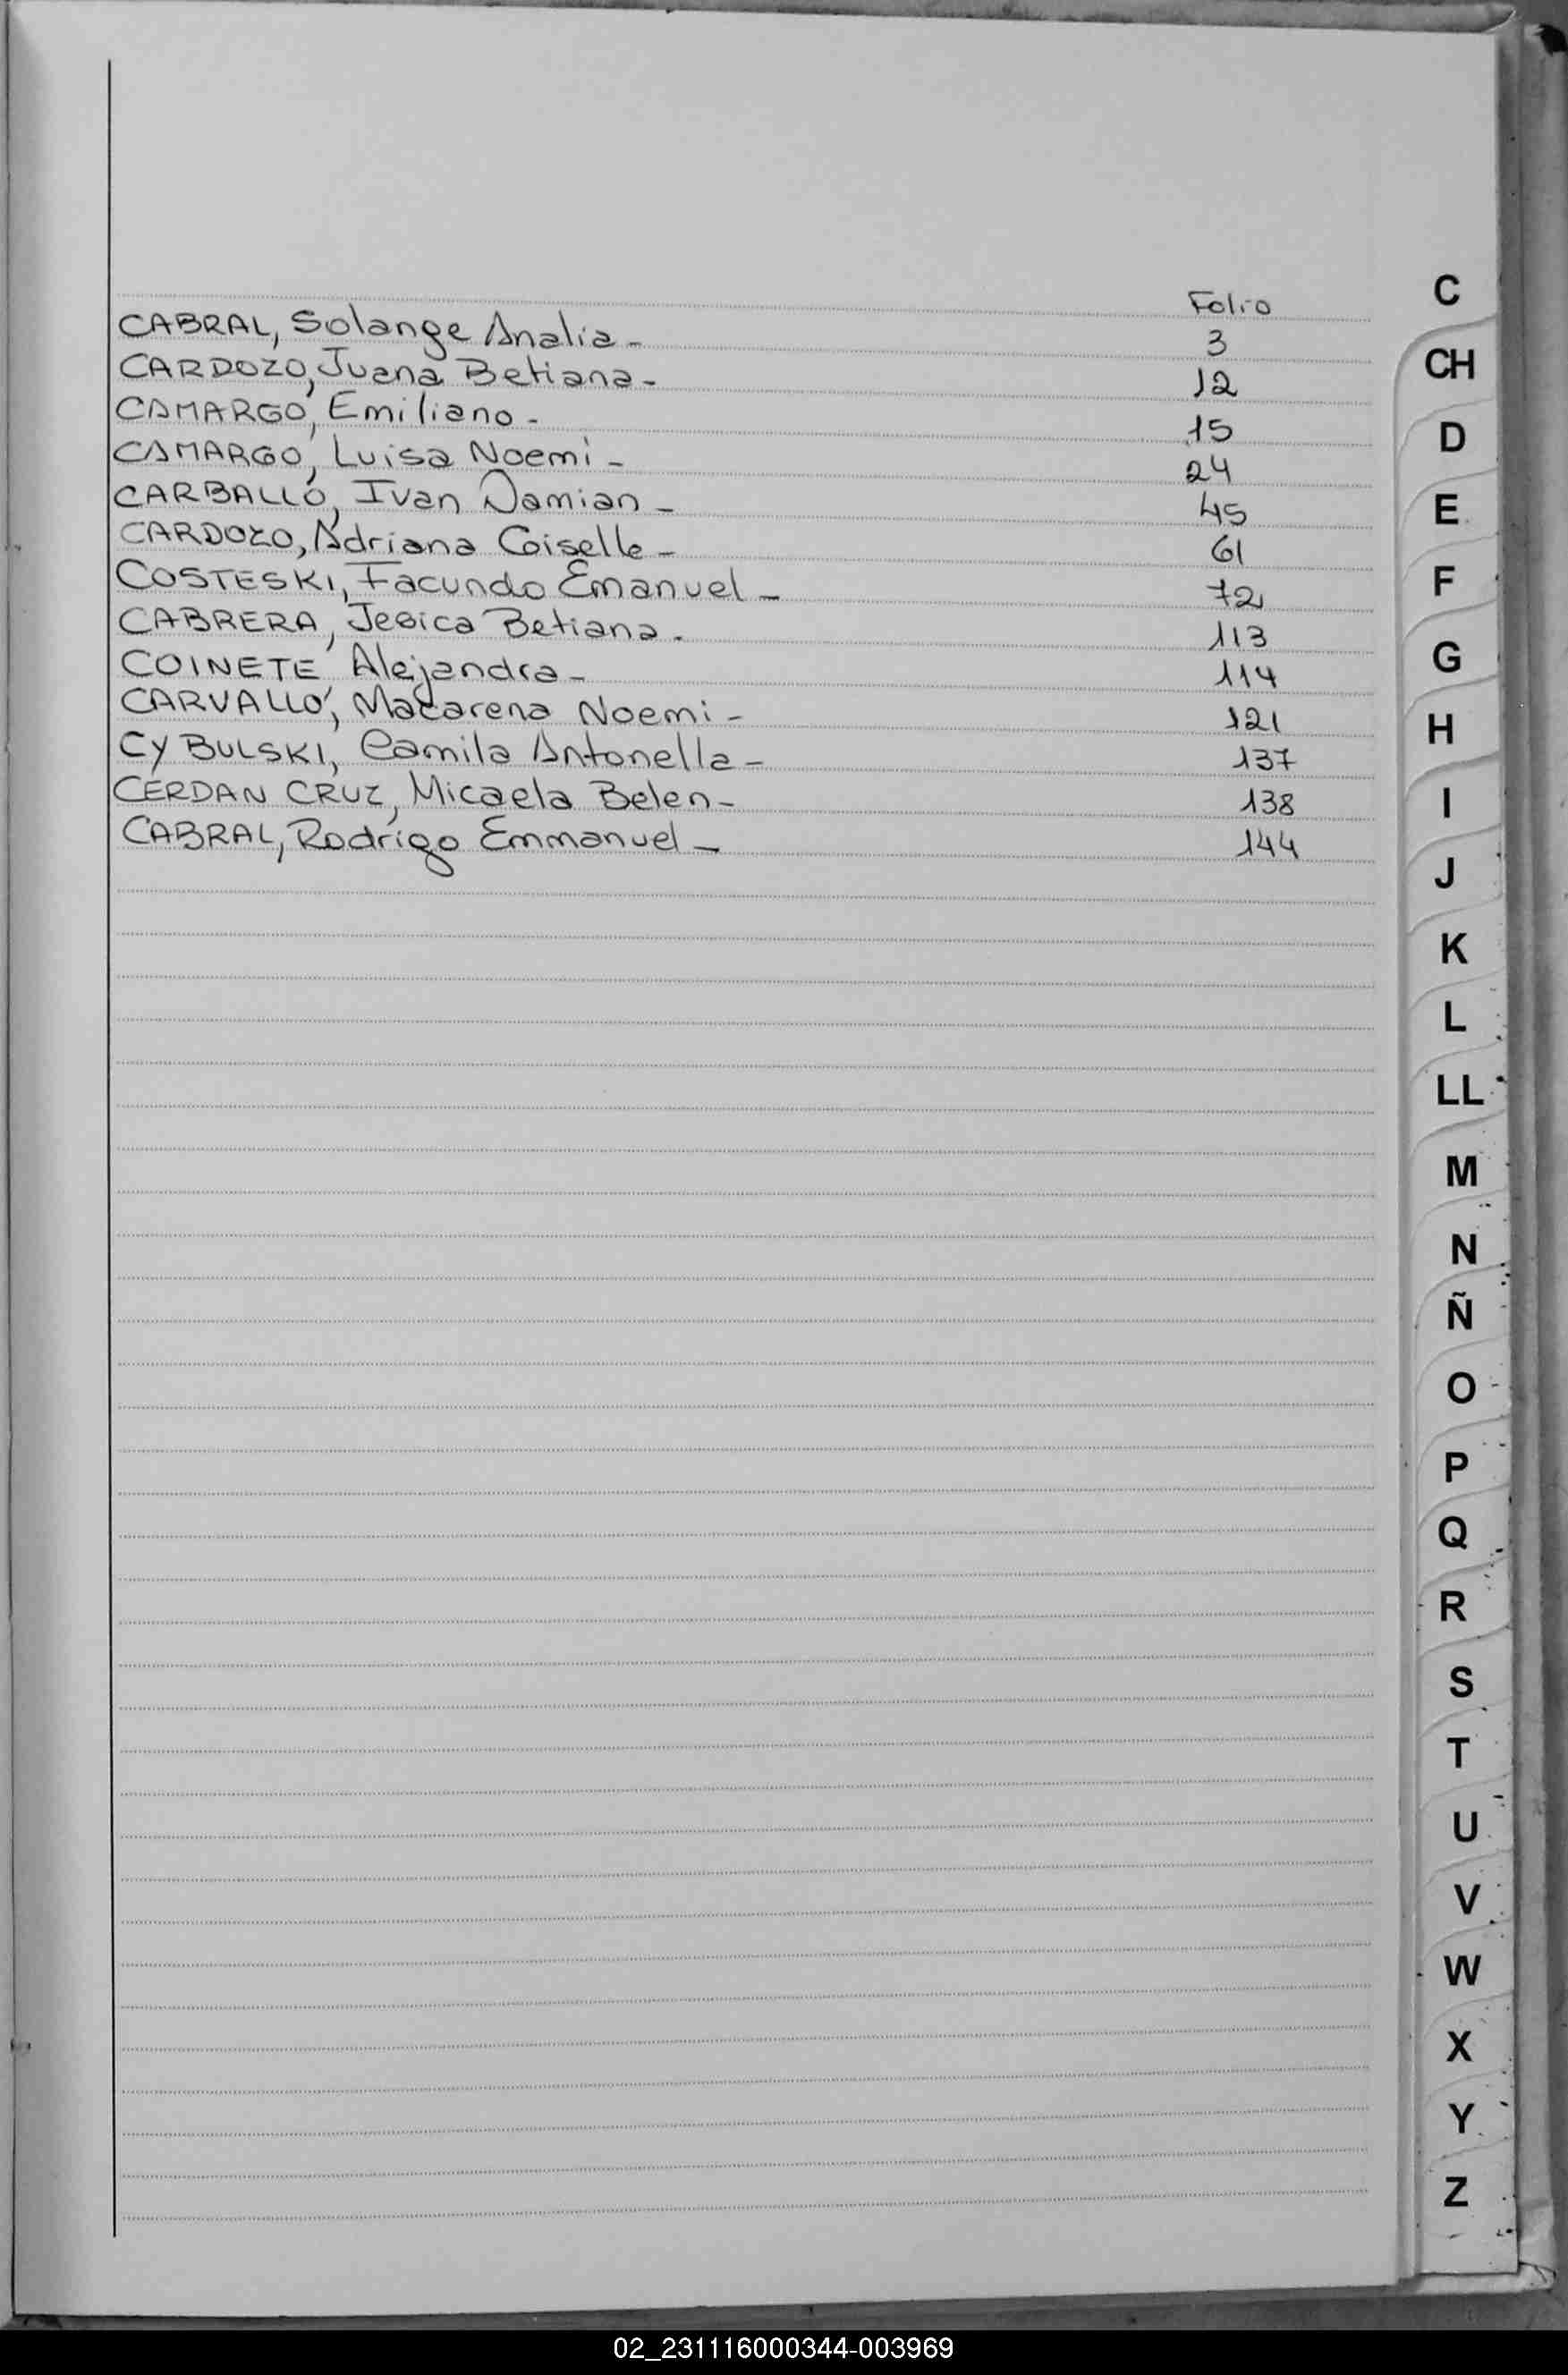 Folio
CABRAL, Solange Analia - 3
CARDOZO, Juana Betiana - 12
CAMARGO, Emiliano - 15
CAMARGO, Luisa Noemi - 24
CARBALLO, Ivan Damian - 45
CARDOZO, Adriana Giselle - 61
COSTESKI, Facundo Emanuel - 72
CABRERA, Jesica Betiana. 113
COINETE Alejandra - 114
CARVALLO, Macarena Noemi - 121
CYBULSKI, Camila Antonella - 137
CERDAN CRUZ, Micaela Belen - 138
CABRAL, Rodrigo Emmanuel - 144
C
CH
D
E
F
G
H
I
J
K
L
LL
M
N
Ñ
O
P
Q
R
S
T
U
V
W
X
Y
Z
02_231116000344-003969